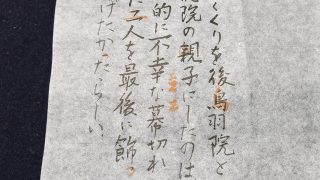 くりを後鳥羽院と
院の親子にしたのは
的に不幸な幕切れ
た二人を最後に飾っ
げたかったらしい。